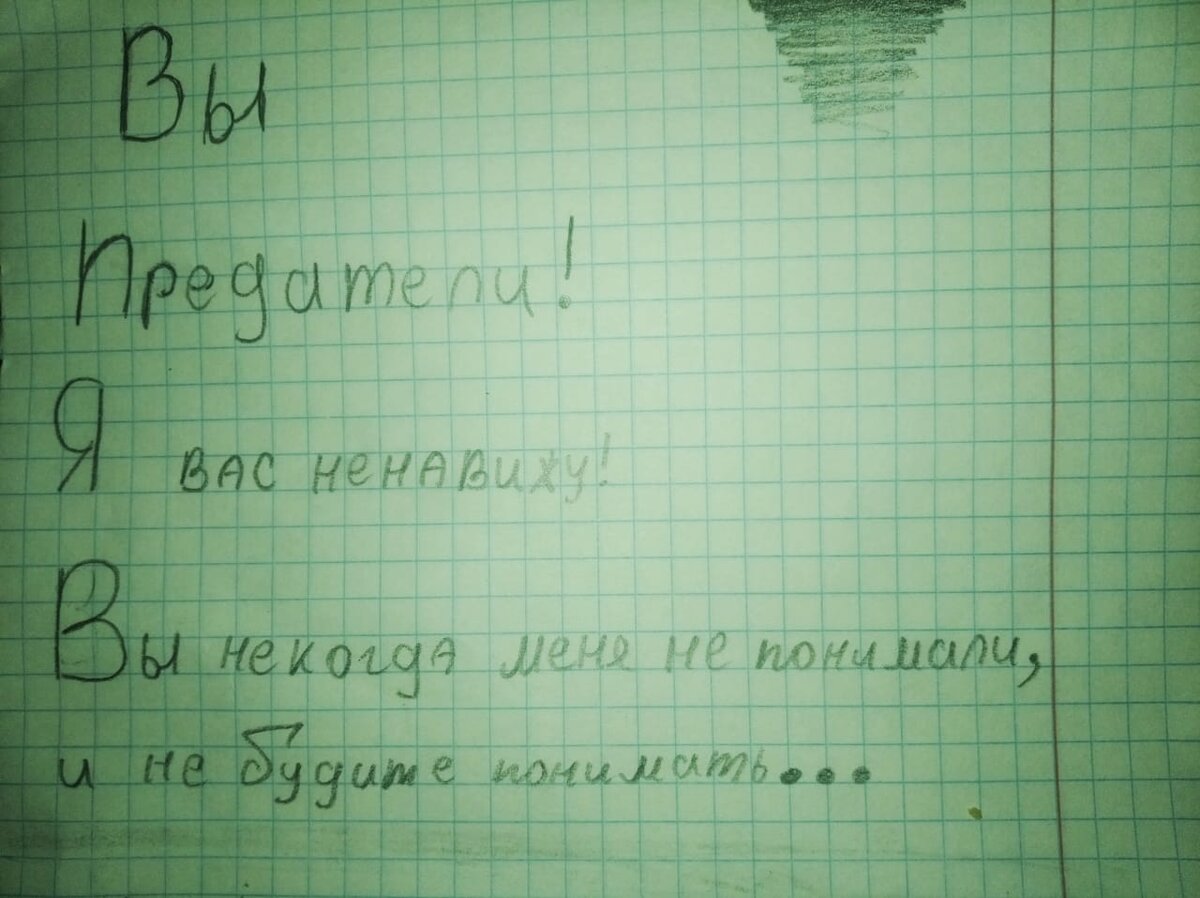 Вы
Предатели!
Я вас ненавиху!
Вы некогда меня не понимали,
и не будите понимать...